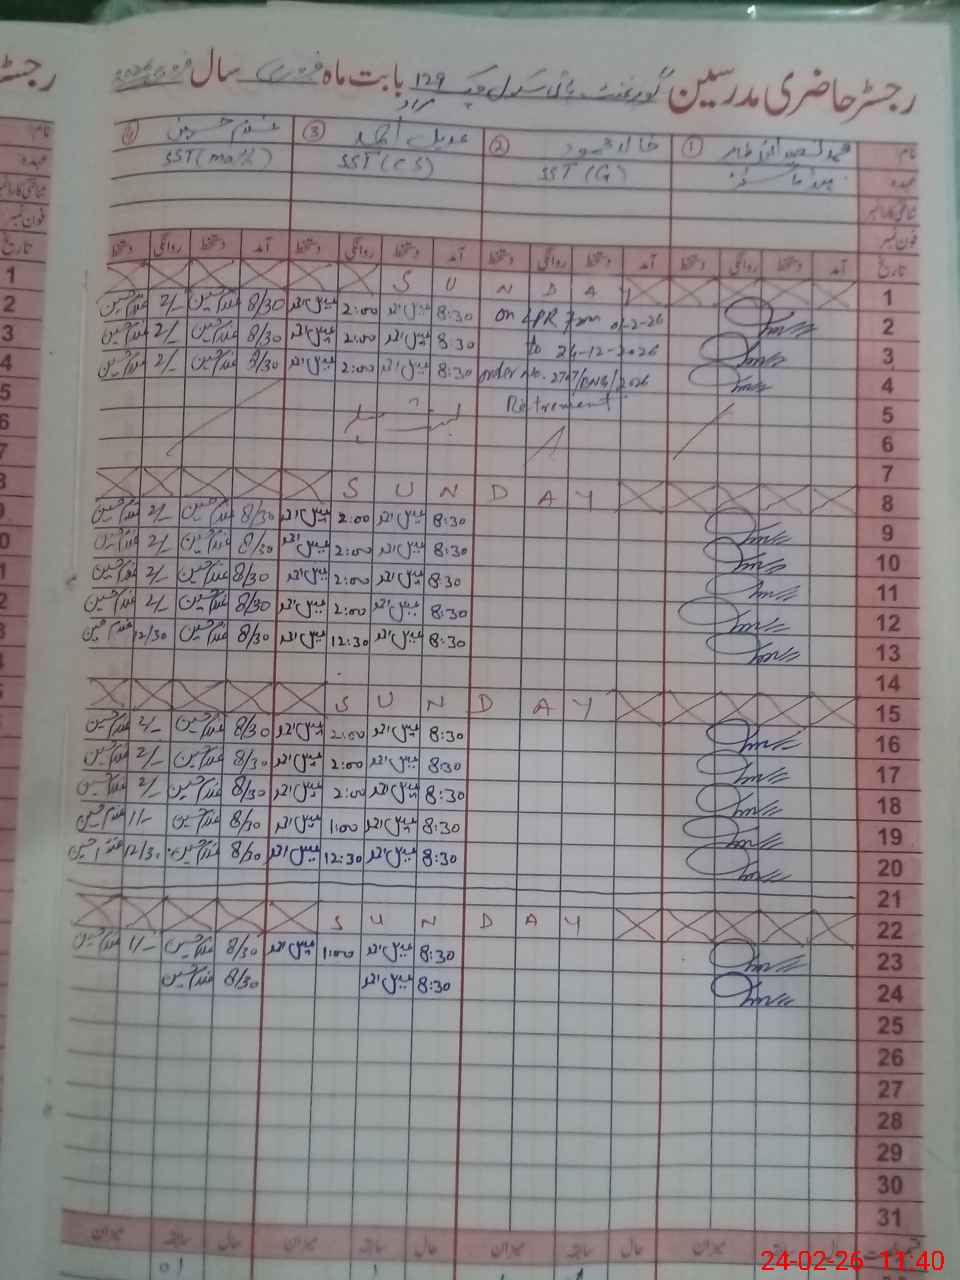 رجسٹر حاضری مدرسین گورنمنٹ ہائی سکول چک 129 مراد بابت ماہ فروری سال 2026
نام ① ② خالد محمود ③ عدیل احمد ④ غلام حسین
عہدہ ہیڈ ماسٹر SST (G) SST (CS) SST (math)
شناختی کارڈ نمبر
فون نمبر
تاریخ آمد دستخط روانگی دستخط آمد دستخط روانگی دستخط آمد دستخط روانگی دستخط آمد دستخط روانگی دستخط
1 SUNDAY
2 on LPR from 8:30 عدیل احمد 2:00 عدیل احمد 8/30 غلام حسین 2/- غلام حسین
3 to 24-12-2026 8:30 عدیل احمد 2:00 عدیل احمد 8/30 غلام حسین 2/- غلام حسین
4 order No. 8:30 عدیل احمد 2:00 عدیل احمد 8/30 غلام حسین 2/- غلام حسین
5 Retirement
6
7
8 SUNDAY
9 8:30 عدیل احمد 2:00 عدیل احمد 8/30 غلام حسین 2/- غلام حسین
10 8:30 عدیل احمد 2:00 عدیل احمد 8/30 غلام حسین 2/- غلام حسین
11 8:30 عدیل احمد 2:00 عدیل احمد 8/30 غلام حسین 2/- غلام حسین
12 8:30 عدیل احمد 2:00 عدیل احمد 8/30 غلام حسین 2/- غلام حسین
13 8:30 عدیل احمد 12:30 عدیل احمد 8/30 غلام حسین 12/30 غلام حسین
14
15 SUNDAY
16 8:30 عدیل احمد 2:00 عدیل احمد 8/30 غلام حسین 2/- غلام حسین
17 8:30 عدیل احمد 2:00 عدیل احمد 8/30 غلام حسین 2/- غلام حسین
18 8:30 عدیل احمد 2:00 عدیل احمد 8/30 غلام حسین 2/- غلام حسین
19 8:30 عدیل احمد 1:00 عدیل احمد 8/30 غلام حسین 1/- غلام حسین
20 8:30 عدیل احمد 12:30 عدیل احمد 8/30 غلام حسین 12/30 غلام حسین
21
22 SUNDAY
23 8:30 عدیل احمد 1:00 عدیل احمد 8/30 غلام حسین 1/- غلام حسین
24 8:30 عدیل احمد 8/30 غلام حسین
25
26
27
28
29
30
31
حال سابقہ میزان حال سابقہ میزان حال سابقہ میزان حال سابقہ میزان
24-02-26 11:40